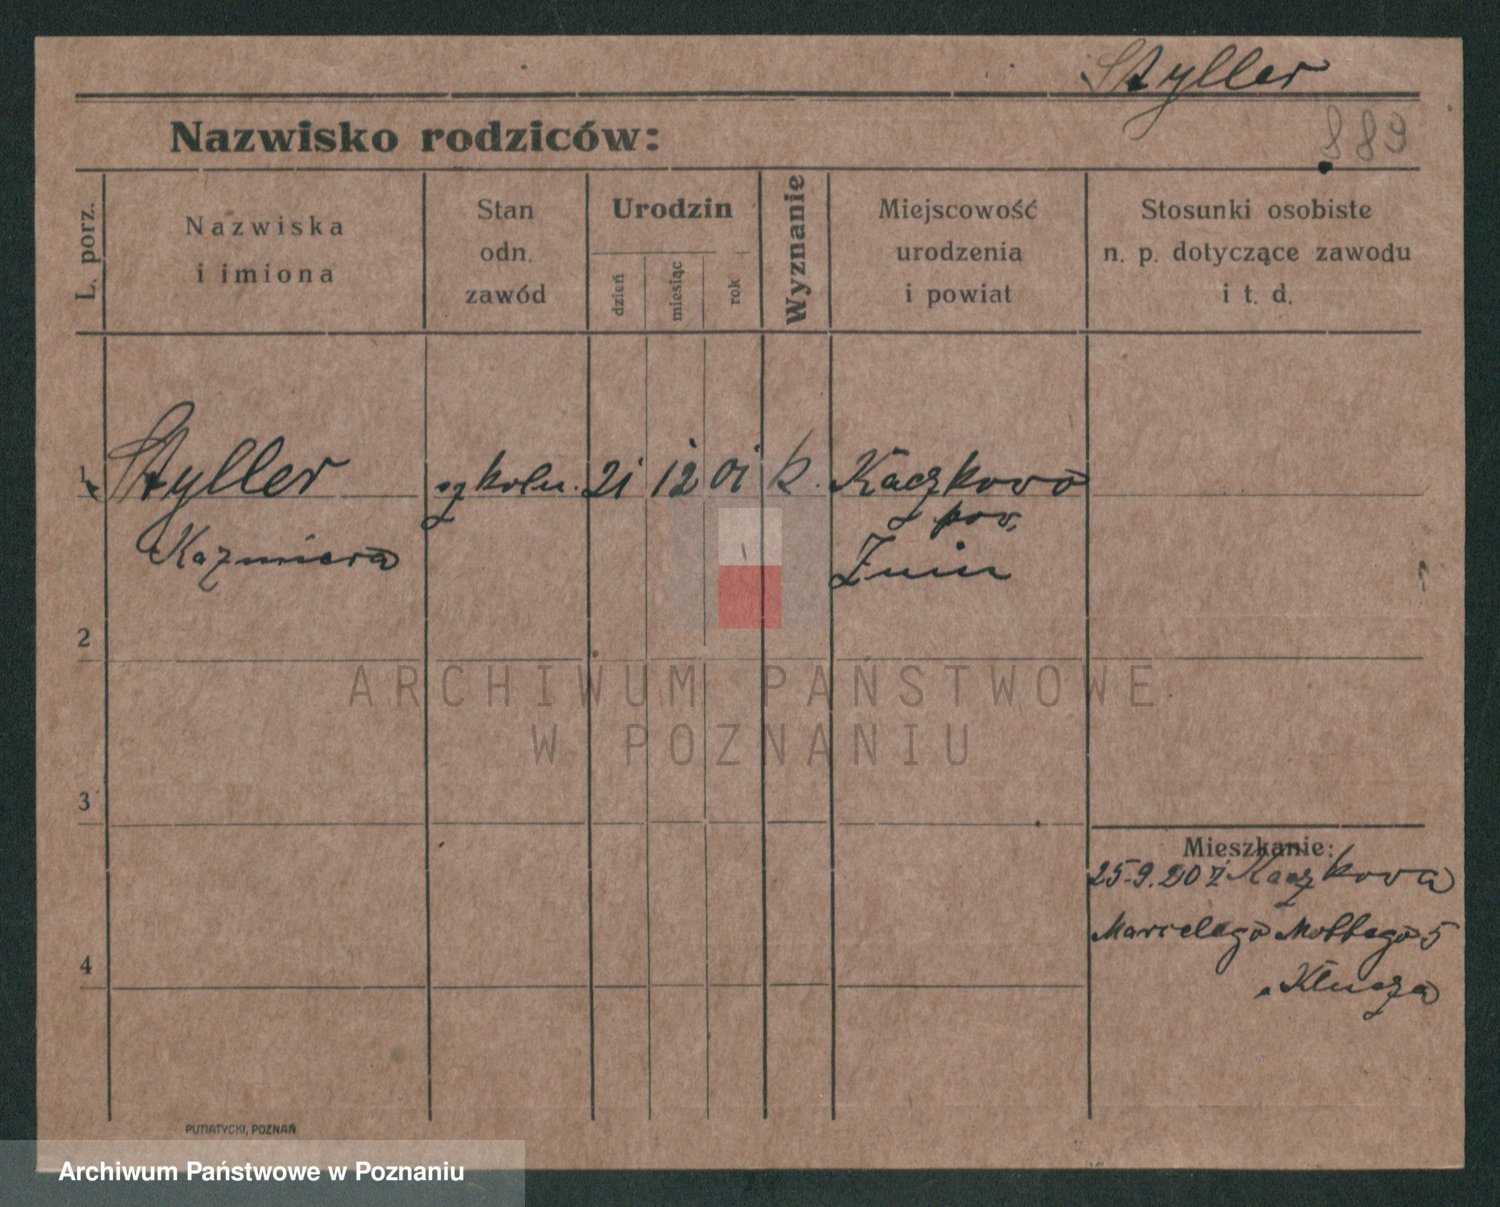 Styller
889
Nazwisko rodziców:
L. porz.
Nazwiska
i imiona
Stan
odn.
zawód
Urodzin
dzień
miesiąc
rok
Wyznanie
Miejscowość
urodzenia
i powiat
Stosunki osobiste
n. p. dotyczące zawodu
i t. d.
1 Styller szkoln. 21 12 01 k. Kaczkowo
pow.
Kazmiera Żnin
2
ARCHIWUM PAŃSTWOWE
W POZNANIU
3
Mieszkanie:
25-9.20 z Kaczkowa
Marcelego Mottego 5
4
PUTIATYCKI, POZNAŃ
Archiwum Państwowe w Poznaniu